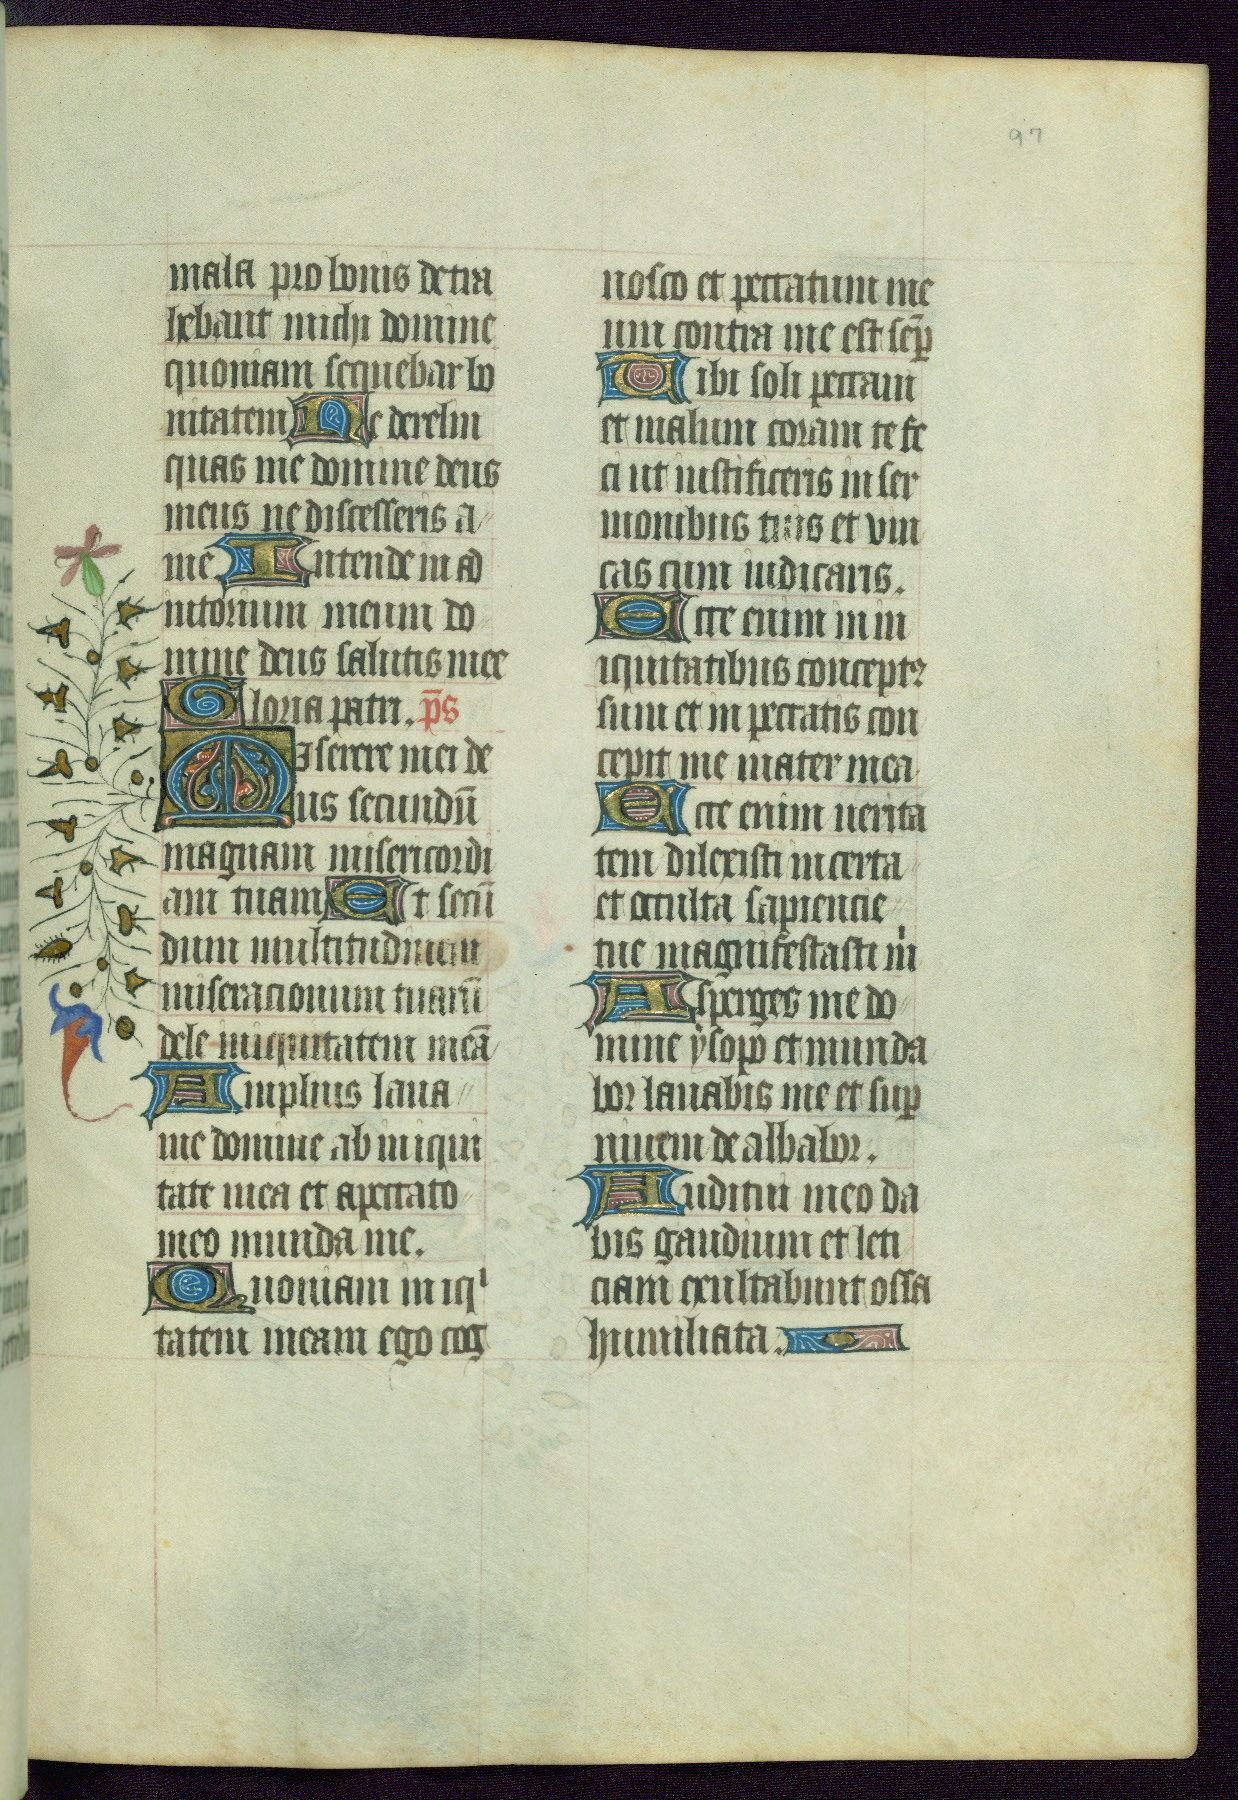 97
mala pro bonis detra
hebant michi domine
quoniam sequebar bo
nitatem Ne derelin
quas me domine deus
meus ne discesseris a
me Intende in ad
iutorium meum do
mine deus salutis mee
Gloria patri. p̄s
Miserere mei de
us secundū
magnam misericordi
am tuam Et secū
dum multitudinem
miseracionum tuarū
dele iniquitatem meā
Amplius laua
me domine ab iniqui
tate mea et a peccato
meo munda me.
Quoniam iniqⁱ
tatem meam ego cog
nosco et peccatum me
um contra me est semꝑ
Tibi soli peccaui
et malum coram te fe
ci ut iustificeris in ser
monibus tuis et vin
cas cum iudicaris.
Ecce enim in in
iquitatibus conceptꝰ
sum et in peccatis con
cepit me mater mea
Ecce enim uerita
tem dilexisti incerta
et occulta sapiencie
tue magnifestasti m̍
Asperges me do
mine ysopo et munda
bor lauabis me et suꝑ
niuem de albabor.
Auditui meo da
bis gaudium et leti
ciam exultabunt ossa
humiliata.